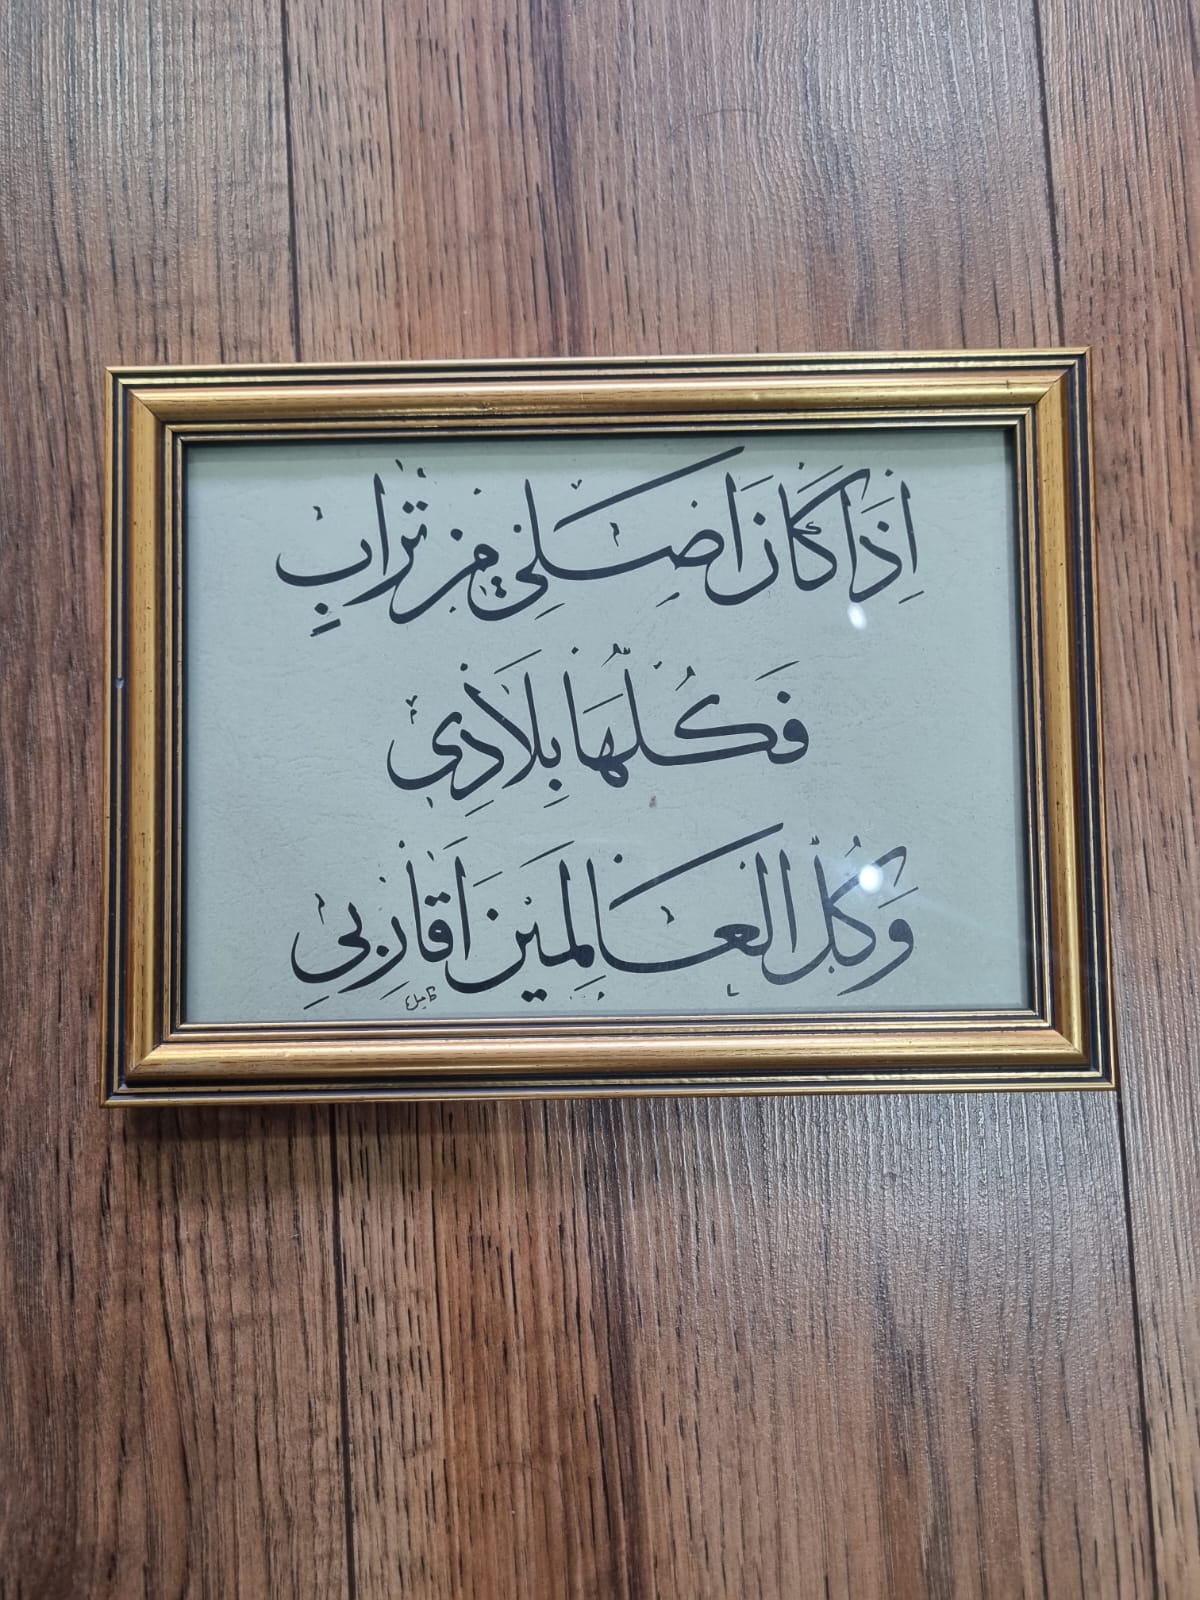 إِذَا كَانَ أَصْلِي مِنْ تُرَابٍ
فَكُلُّهَا بِلَادِي
وَكُلُّ الْعَالَمِينَ أَقَارِبِي